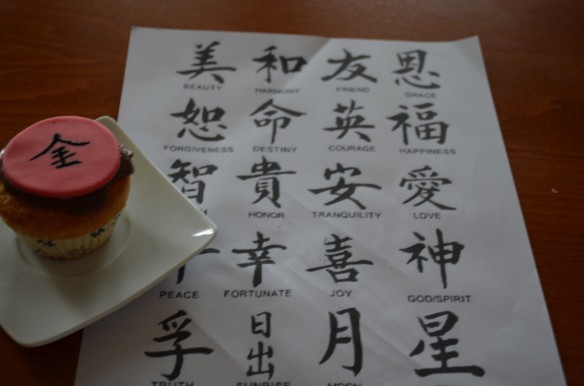 美 和 友 恩
BEAUTY HARMONY FRIEND GRACE
恕 命 英 福
FORGIVENESS DESTINY COURAGE HAPPINESS
金
智 貴 安 愛
HONOR TRANQUILITY LOVE
幸 喜 神
PEACE FORTUNATE JOY GOD/SPIRIT
孚 日出 月 星
TRUTH SUNRISE MOON